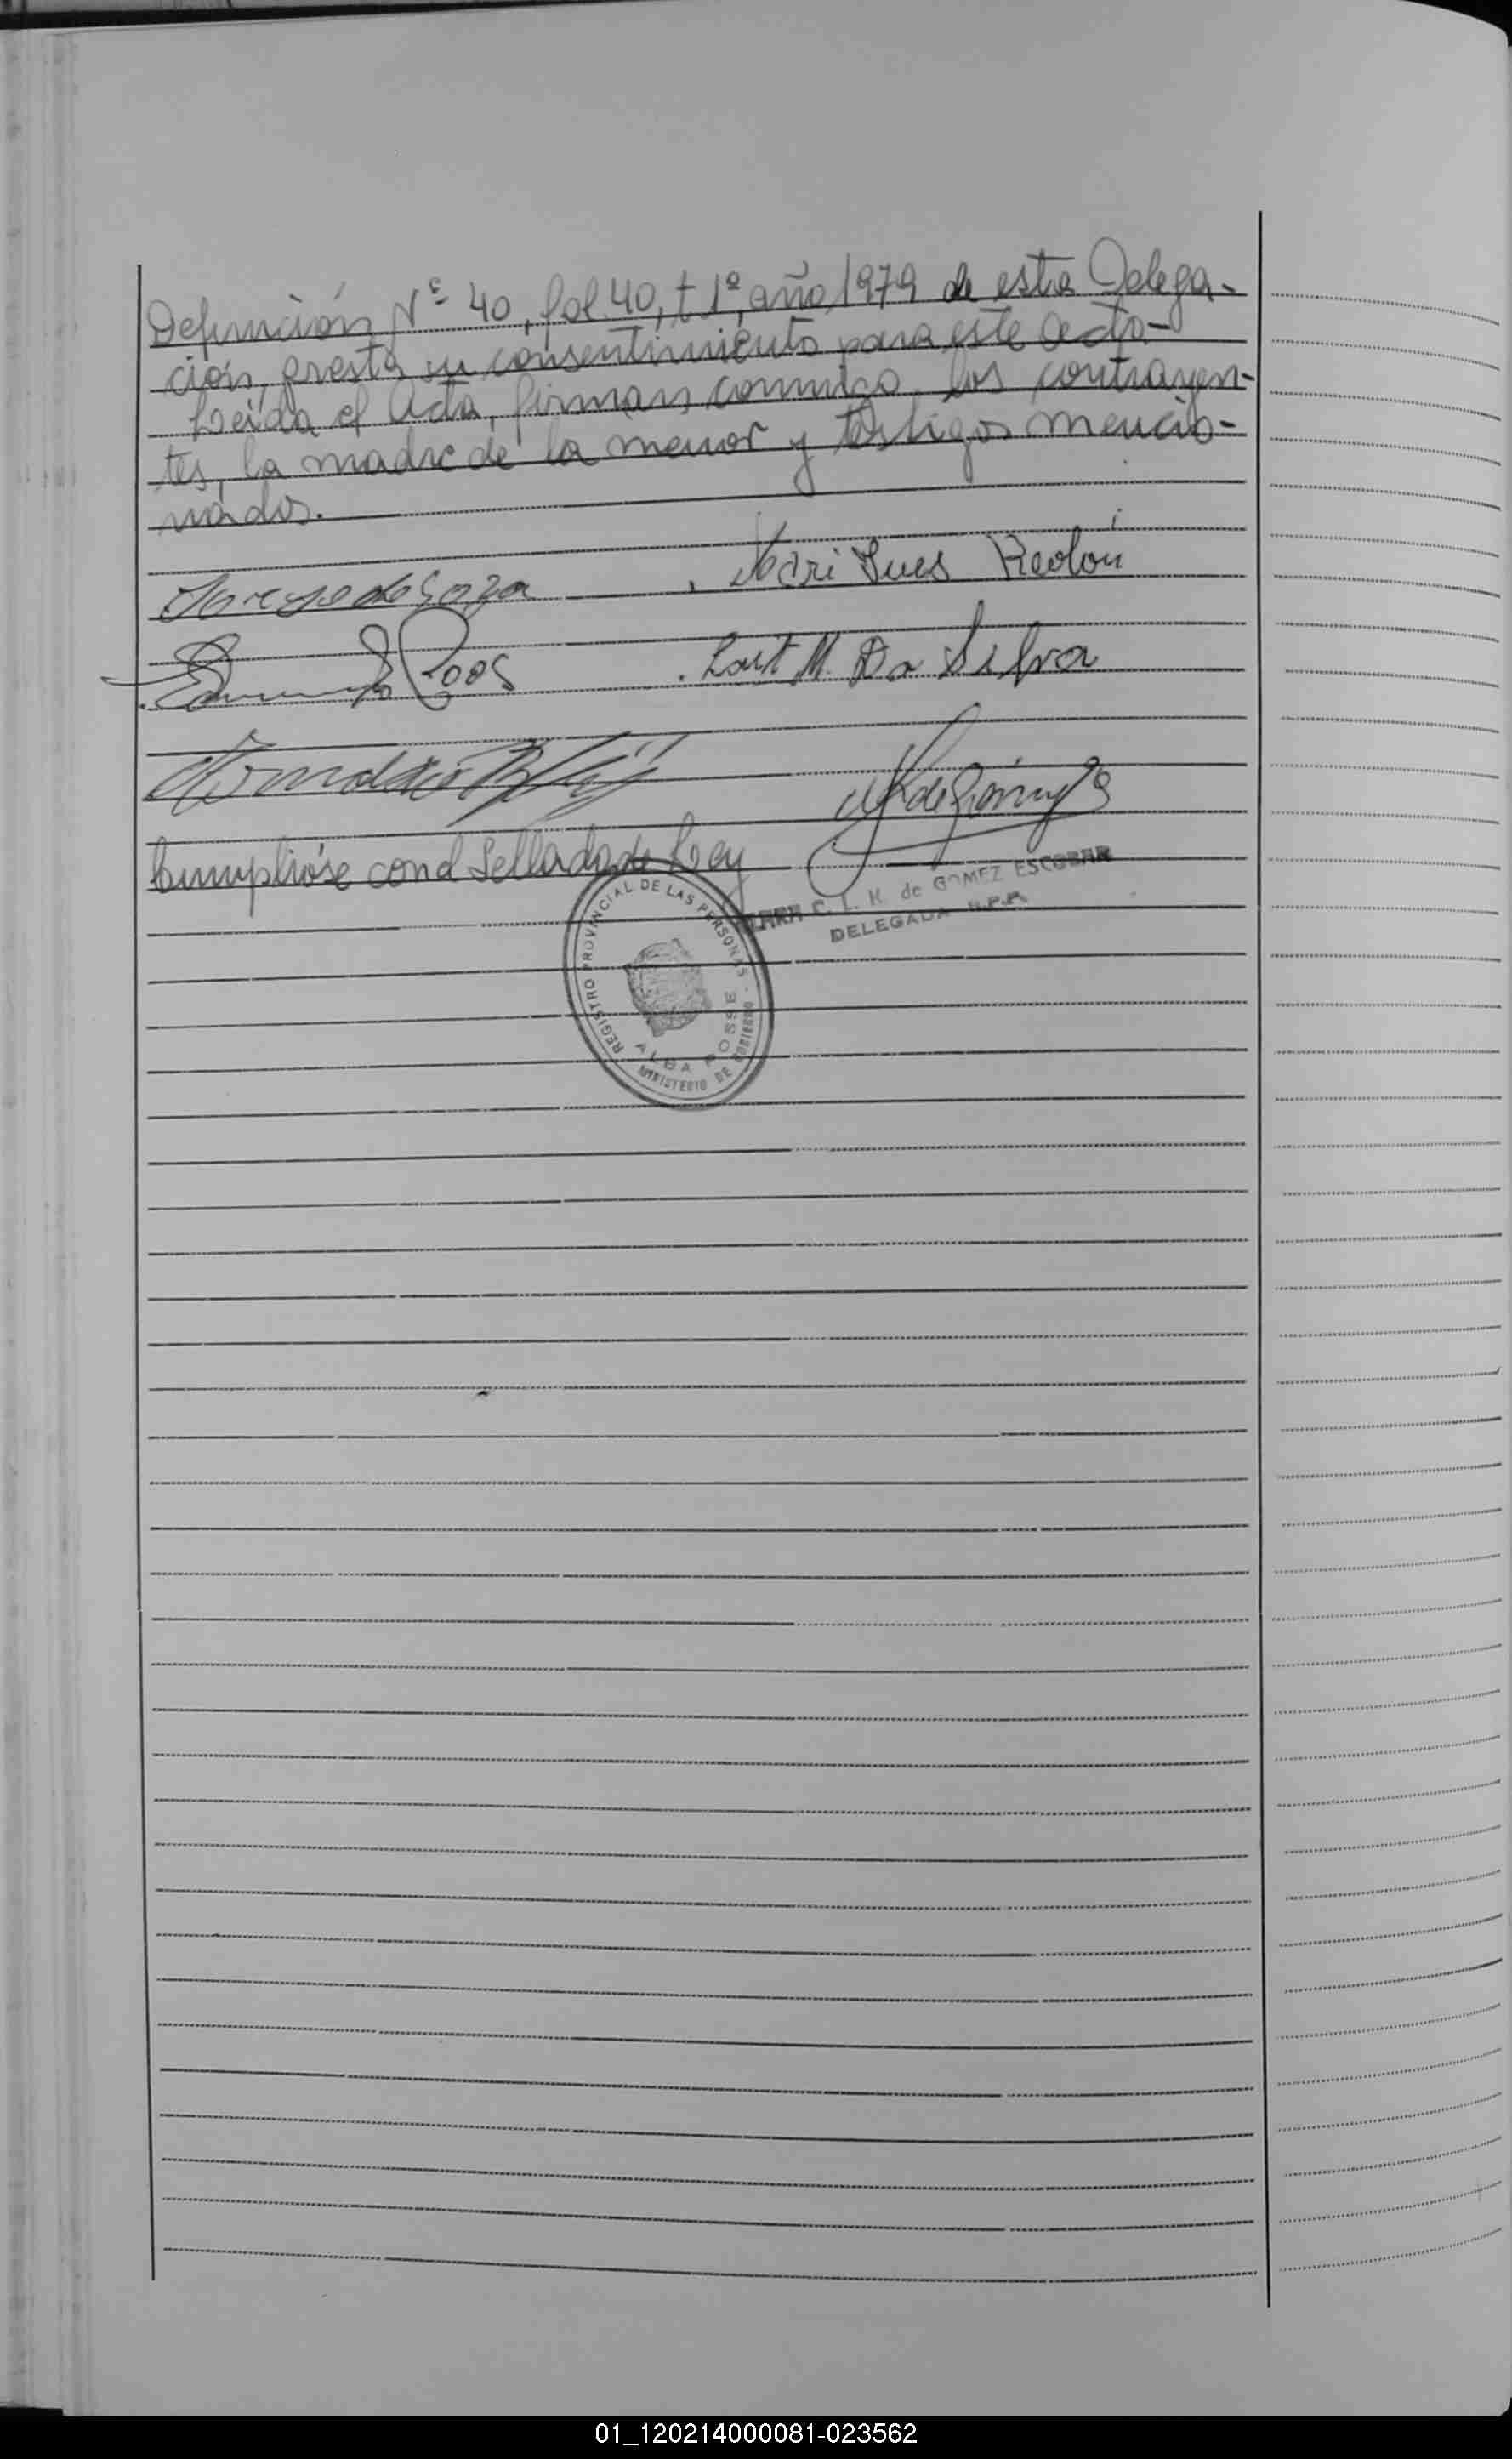 Defunción Nº 40, fol. 40, t 1º, año 1979 de esta Delega-
ción, presta su consentimiento para este acto-
Leída el Acta, firman conmigo los contrayen-
tes, la madre de la menor y testigos mencio-
nados.
de Soza
. Mari Ines Reolon
Roos
. Lout M. Da Silva
Cumplióse con el Sellado de Ley
C. L. K. de GOMEZ ESCOBAR
DELEGADA R.P.P.
REGISTRO PROVINCIAL DE LAS PERSONAS - MINISTERIO DE GOBIERNO
ALBA POSSE
01_120214000081-023562